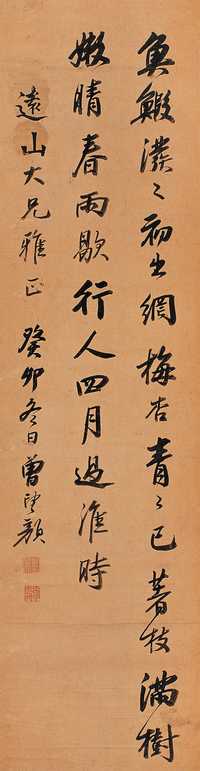 魚鰕潑〻初出網梅杏青〻已著枝滿樹
嫩晴春雨歇行人四月過淮時
遠山大兄雅正 癸卯冬日曾望顏